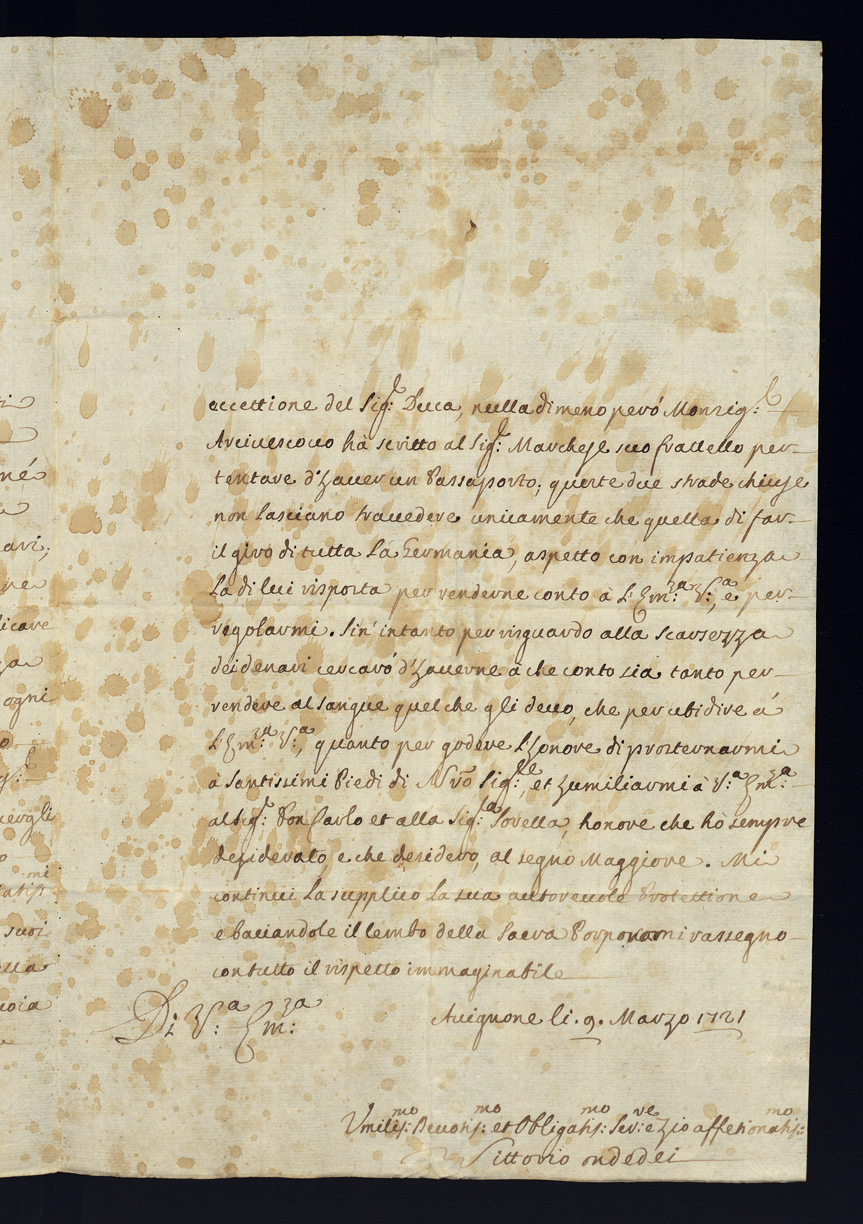 eccettione del Sig:r Duca, nulladimeno però Monsig:r
Arciuescouo hà scritto al Sig:r Marchese suo frattello per
tentare d'hauer un Passaporto; queste due strade chiuse
non lasciano trauedere unicamente che quella di far
il giro di tutta la Germania, aspetto con impatienza
la di lui risposta per renderne conto à L'Em:za V:a, e per
regolarmi. Sin' intanto per risguardo alla scarsezza
dei denari cercarò d'hauerne à che conto sia tanto per
rendere al sangue quel che gli deuo, che per ubidire à
L'Em:za V:a, quanto per godere L'honore di prosternarmi
à Santissimi Piedi di Nro Sig:re, et humiliarmi à V:a Em:za
al Sig:r Don Carlo et alla Sig:ra Sorella, honore che hò sempre
desiderato, e che desidero, al segno Maggiore. Mi
continui la supplico la sua autoreuole Protettione
e baciandole il lembo della Sacra Porpora mi rassegno
con tutto il rispetto immaginabile
Di V:a Em:za
Auignone li .9. Marzo 1721
Vmilis:mo Deuotis:mo et Obligatis:mo Ser:ve e Zio affetionatis:mo
Vittorio ondedei
né
aui;
ne
licare
ogni
suoi
ella